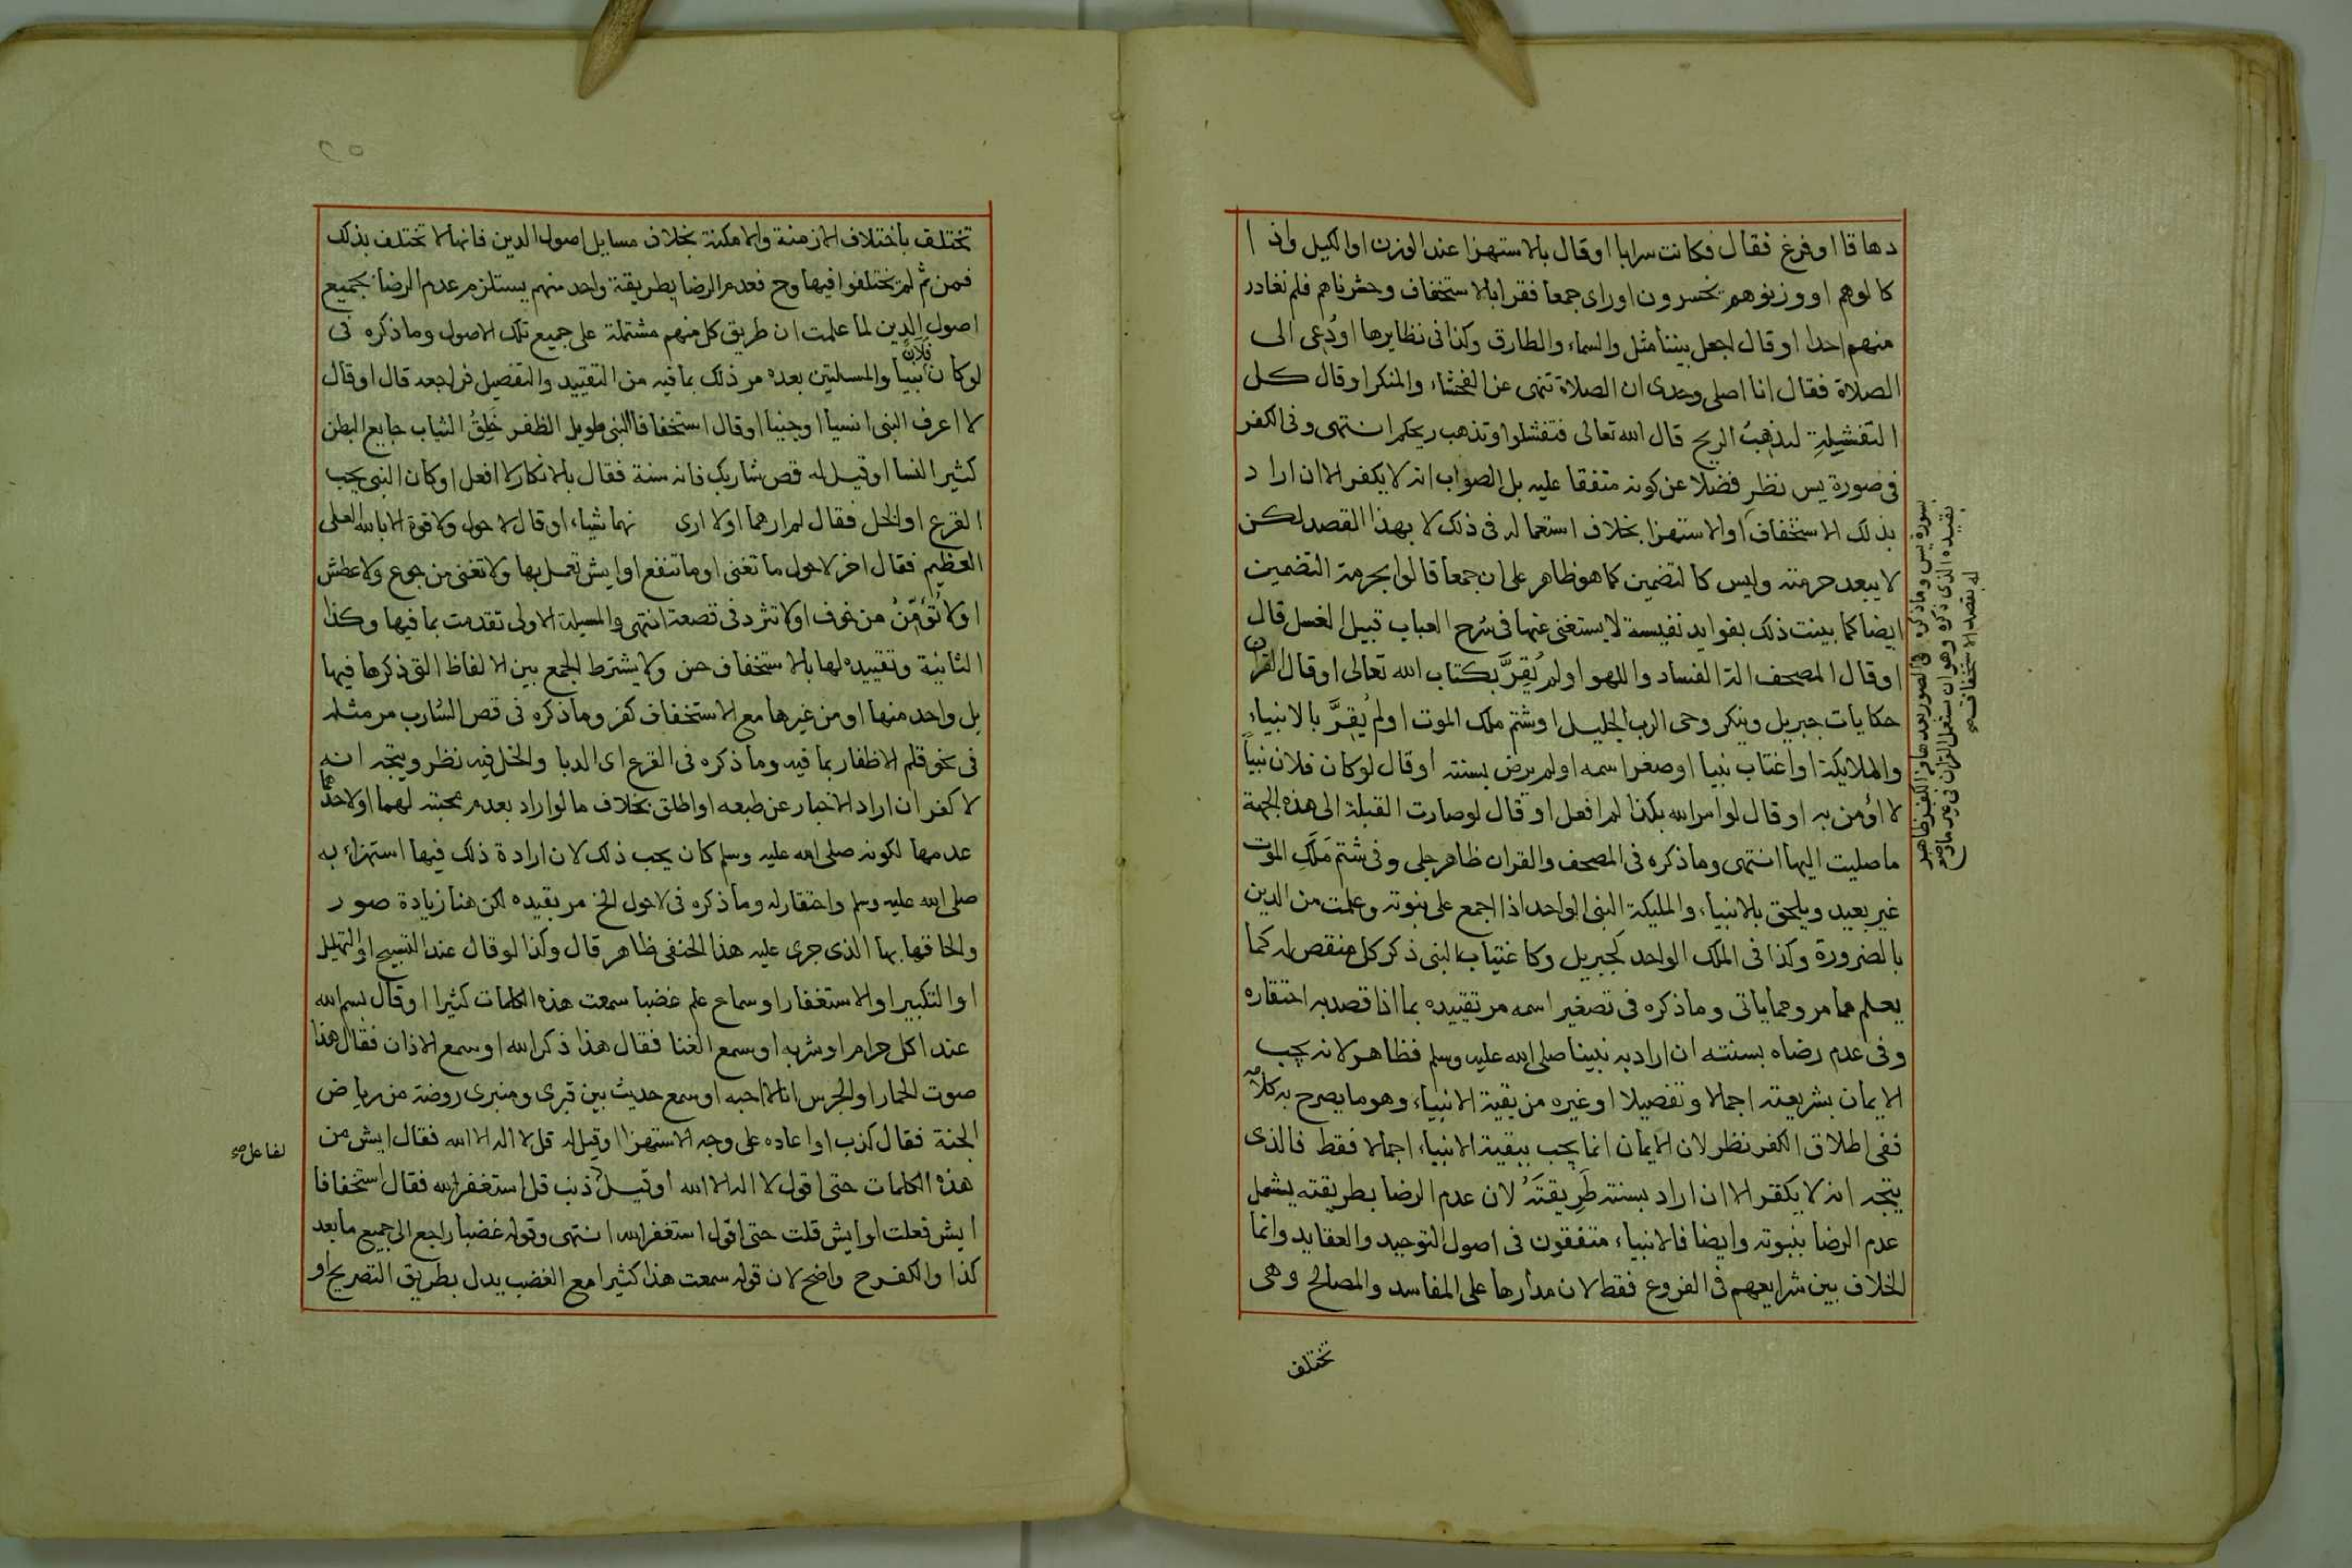 دهاقا او فرغ فقال فكانت سرابا او قال بالاستهزا عند الوزن او الكيل واذا
كالوهم او وزنوهم يخسرون او راى جمعا فقرا بالاستخفاف وحشرناهم فلم نغادر
منهم احدا او قال اجعل بيننا مثل والسماء والطارق وكذا في نظايرها او دُعى الى
الصلاة فقال انا اصلى وحدى ان الصلاة تنهى عن الفحشاء والمنكر او قال كل
التفشيلةِ ليذهبُ الريح قال الله تعالى فتفشلوا وتذهب ريحكم انتهى وفى الكفر
فى صورة يس نظر فضلا عن كونه متفقا عليه بل الصواب انه لا يكفر الا ان اراد
بذلك الاستخفاف او الاستهزا بخلاف استعماله فى ذلك لا بهذا القصد لكن
لا يبعد حرمته وليس كالتضمين كما هو ظاهر على ان جمعا قالوا بحرمة التضمين
ايضا كما بينت ذلك بفوايد نفيسة لا يستغنى عنها فى شرح العباب قبيل الغسل قال
او قال المصحف الة الفساد واللهو او لم يُقِرَّ بكتاب الله تعالى او قال القران
حكايات جبريل وينكر وحى الرب الجليل او شتم ملك الموت او لم يُقِرَّ بالانبياء
والملايكة او اغتاب نبيا او صغر اسمه او لم يرض بسنته او قال لو كان فلان نبياً
لا اؤمن به او قال لو امر الله بكذا لم افعل او قال لو صارت القبلة الى هذه الجهة
ما صليت اليها انتهى وما ذكره فى المصحف والقران ظاهر جلى وفى شتم مَلَكِ الموت
غير بعيد ويلحق بالانبياء والمليكة النبى الواحد اذا اجمع على نبوته وعلمت من الدين
بالضرورة وكذا فى الملك الواحد كجبريل وكاغتياب النبى ذكر كل منقص له كما
يعلم مما مر ومما ياتى وما ذكره فى تصغير اسمه مر تقييده بما اذا قصد به احتقاره
وفى عدم رضاه بسنته ان اراد به نبينا صلى الله عليه وسلم فظاهر لانه يجب
الايمان بشريعته اجمالا وتفصيلا او غيره من بقية الانبياء وهو ما يصرح به كلامه
ففى اطلاق الكفر نظر لان الايمان انما يجب ببقية الانبياء اجمالا فقط فالذى
يتجه انه لا يكفر الا ان اراد بسنته طَرِيقتَهُ لان عدم الرضا بطريقته يشمل
عدم الرضا بنبوته وايضا فالانبياء متفقون فى اصول التوحيد والعقايد وانما
الخلاف بين شرايعهم فى الفروع فقط لان مدارها على المفاسد والمصالح وهى
تختلف
بسورة يس وما ذكره فى الصور بعدها من الكفر ظاهر
بقيده الذى ذكره وهو ان يستعمل القران فى غير ما وضع
له بقصد الاستخفاف صح
تختلف باختلاف الازمنة والامكنة بخلاف مسايل اصول الدين فانها لا تختلف بذلك
فمن ثم لم يختلفوا فيها وح فعدم الرضا بطريقة واحد منهم يستلزم عدم الرضا بجميع
اصول الدين لما علمت ان طريق كل منهم مشتملة على جميع تلك الاصول وما ذكره فى
لو كان فلان نبيا والمسلتين بعده مر ذلك بما فيه من التقييد والتفصيل فراجعه قال او قال
لا اعرف النبى انسيا او جنيا او قال استخفافا النبى طويل الظفر خَلِقُ الثياب جايع البطن
كثير النسا او قيل له قص شاربك فانه سنة فقال بالانكار لا افعل او كان النبى يحب
القرع او الخل فقال لم ارهما او لا ارى نهما شياء او قال لا حول ولا قوة الا بالله العلى
العظيم فقال اخر لا حول ما تغنى او ما تنفع او ايش تعمل بها ولا تغنى من جوع ولا عطش
او لا تُؤَمِّنُ من خوف او لا تثرد فى قصعة انتهى والمسيلة الاولى تقدمت بما فيها وكذا
الثانية وتقييده لها بالاستخفاف حسن ولا يشترط الجمع بين الالفاظ التى ذكرها فيها
بل واحد منها او من غيرها مع الاستخفاف كفر وما ذكره فى قص الشارب مر مثله
فى نحو قلم الاظفار بما فيه وما ذكره فى القرع اى الدبا والخل فيه نظر ويتجه انه
لا كفر ان اراد الاخبار عن طبعه او اطلق بخلاف ما لو اراد بعدم محبته لهما او لاحدهما
عدمها لكونه صلى الله عليه وسلم كان يحب ذلك لان ارادة ذلك فيها استهزاء به
صلى الله عليه وسلم واحتقار له وما ذكره فى لا حول الخ مر بقيده لكن هنا زيادة صور
والحاقها بها الذى جرى عليه هذا الحنفى ظاهر قال وكذا لو قال عند التسبيح او التهليل
او التكبير او الاستغفار او سماع علم غضبا سمعت هذه الكلمات كثيرا او قال بسم الله
عند اكل حرام او شربه او سمع الغنا فقال هذا ذكر الله او سمع الاذان فقال هذا
صوت الحمار او الجرس انا لا احبه او سمع حديث بين قبرى ومنبرى روضة من رياض
الجنة فقال كذب او اعاده على وجه الاستهزا او قيل له قل لا اله الا الله فقال ايش من
هذه الكلمات حتى اقول لا اله الا الله او قيل ذنب قل استغفر الله فقال استخفافا
ايش فعلت او ايش قلت حتى اقول استغفر الله انتهى وقوله غضبا راجع الى جميع ما بعد
كذا والكفر ح واضح لان قوله سمعت هذا كثيرا مع الغضب يدل بطريق التصريح او
لفاعل صح